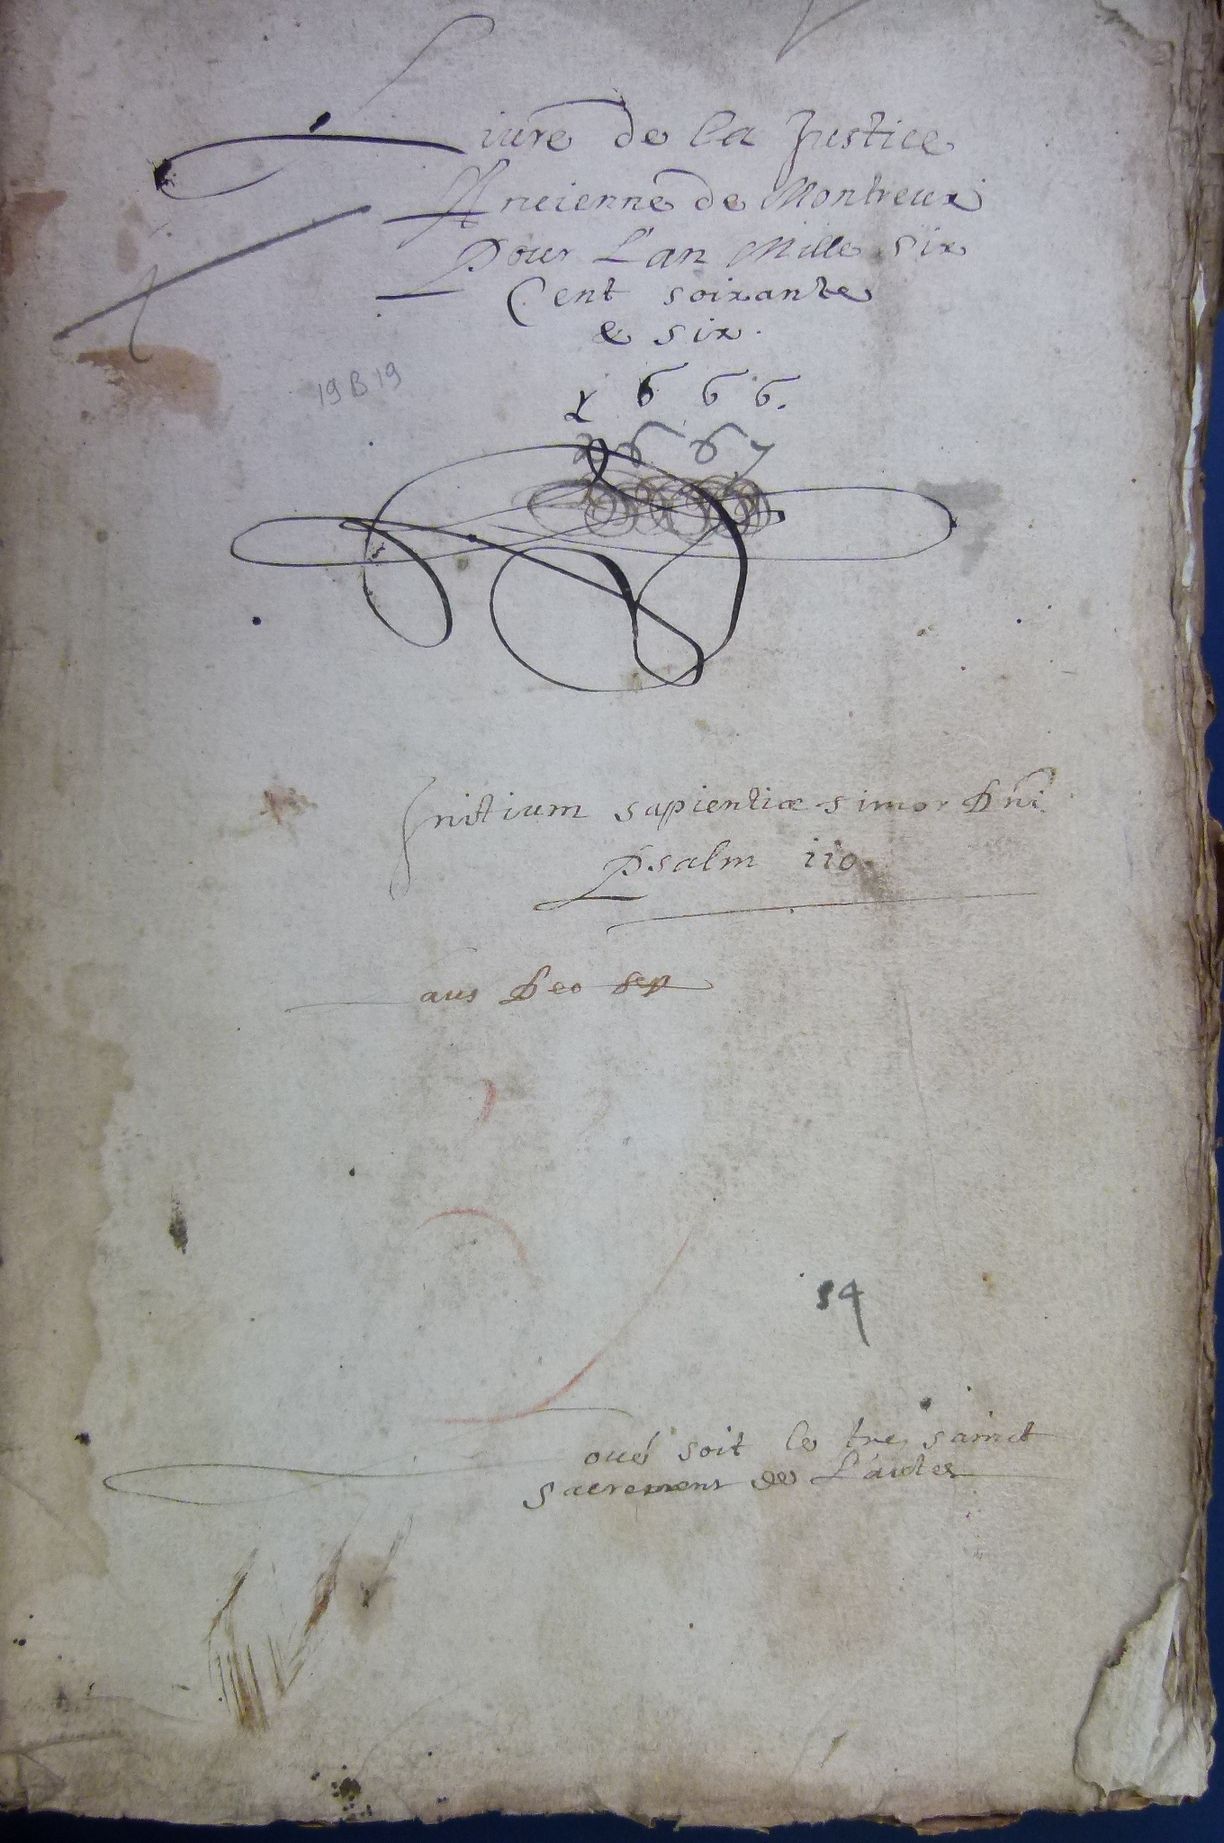 Liure de la Justice
Ancienne de Montreux
Pour L'an Mille six
Cent soixante
& six.
19 B 19
1666.
1667
Initium sapientiæ timor Dñi
Psalm 110
Laus Deo
54
Loué soit le tre sainct
Sacrement de L'autel